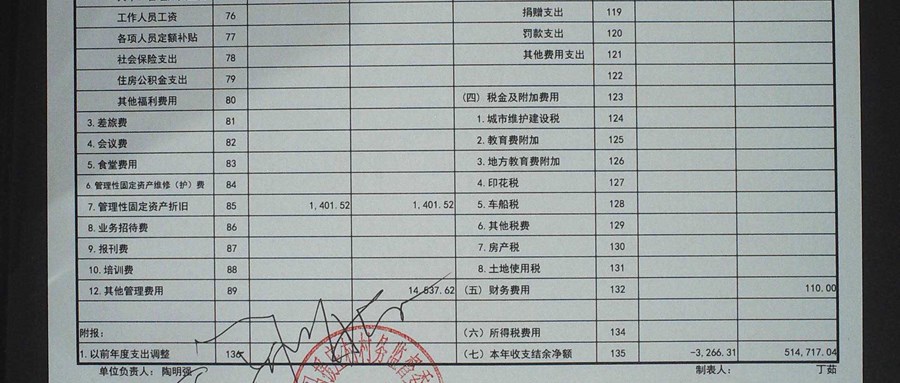 工作人员工资 76 捐赠支出 119
各项人员定额补贴 77 罚款支出 120
社会保险支出 78 其他费用支出 121
住房公积金支出 79 122
其他福利费用 80 (四) 税金及附加费用 123
3.差旅费 81 1.城市维护建设税 124
4.会议费 82 2.教育费附加 125
5.食堂费用 83 3.地方教育费附加 126
6.管理性固定资产维修(护)费 84 4.印花税 127
7.管理性固定资产折旧 85 1,401.52 1,401.52 5.车船税 128
8.业务招待费 86 6.其他税费 129
9.报刊费 87 7.房产税 130
10.培训费 88 8.土地使用税 131
12.其他管理费用 89 14,537.62 (五) 财务费用 132 110.00
附报: (六) 所得税费用 134
1.以前年度支出调整 136 (七) 本年收支结余净额 135 -3,266.31 514,717.04
单位负责人: 陶明强 制表人: 丁茹
村务监督委